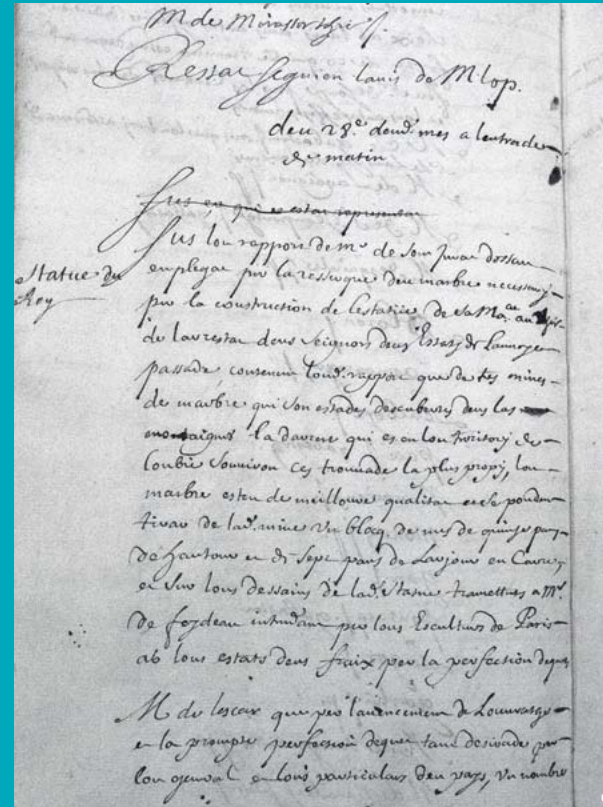 M de Mirassor
Ressar seguien l'avis de M lop.
deu 28.e deud. mes a lentrade
de matin
sus so qui es estat representat
Statue du
Roy
Sus lou rapport de mr de
empleyat per la resserque deu marbre necessary
per la construction de l'estatue de sa Ma.
de l'arrestat deus seignors deus Estatz de l'anneye
passade contenent loud. rapport que de tes mines
de marbre qui son estades descubertes dens las
montaignes la darrere qui es en lou territory de
Loubie Soubiron es trouvade la plus propy, lou
marbre esten de meilloure qualitat et se poden
tirar de lad. mine un blocq de mes de quinze pams
de hautour et de sept pams de larjour en carre,
et sus lous dessains de lad. statue trametutz a Mr.
de foydeau intendant per lous Esculturs de Paris
ab lous estatz deus fraix per la perfection dequere
M de lescar que per l'avencement de l'ouvratge
et la prompte perfection dequet tant desirade per
lou general et lous particulars deu pays, un nombre